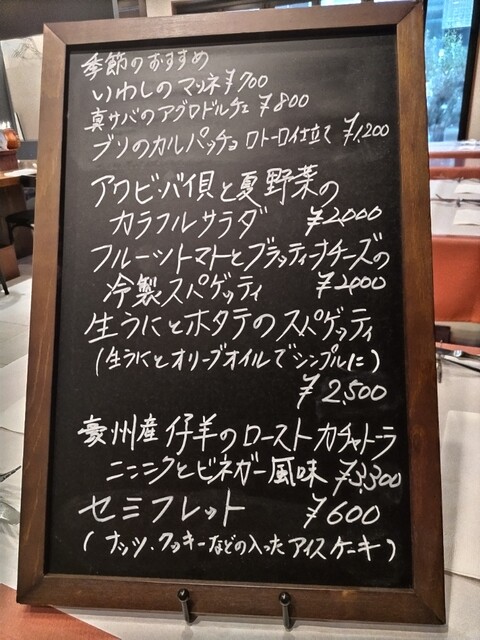 季節のおすすめ
いわしのマリネ ¥700
真サバのアグロドルチェ ¥800
ブリのカルパッチョ ロトーロ仕立て ¥1,200
アワビ・バイ貝と夏野菜の
カラフルサラダ ¥2,000
フルーツトマトとブラッティーナチーズの
冷製スパゲッティ ¥2,000
生うにとホタテのスパゲッティ
(生うにとオリーブオイルでシンプルに)
¥2,500
豪州産仔羊のロースト カチャトーラ
ニンニクとビネガー風味 ¥3,300
セミフレット ¥600
(ナッツ、クッキーなどの入ったアイスケーキ)